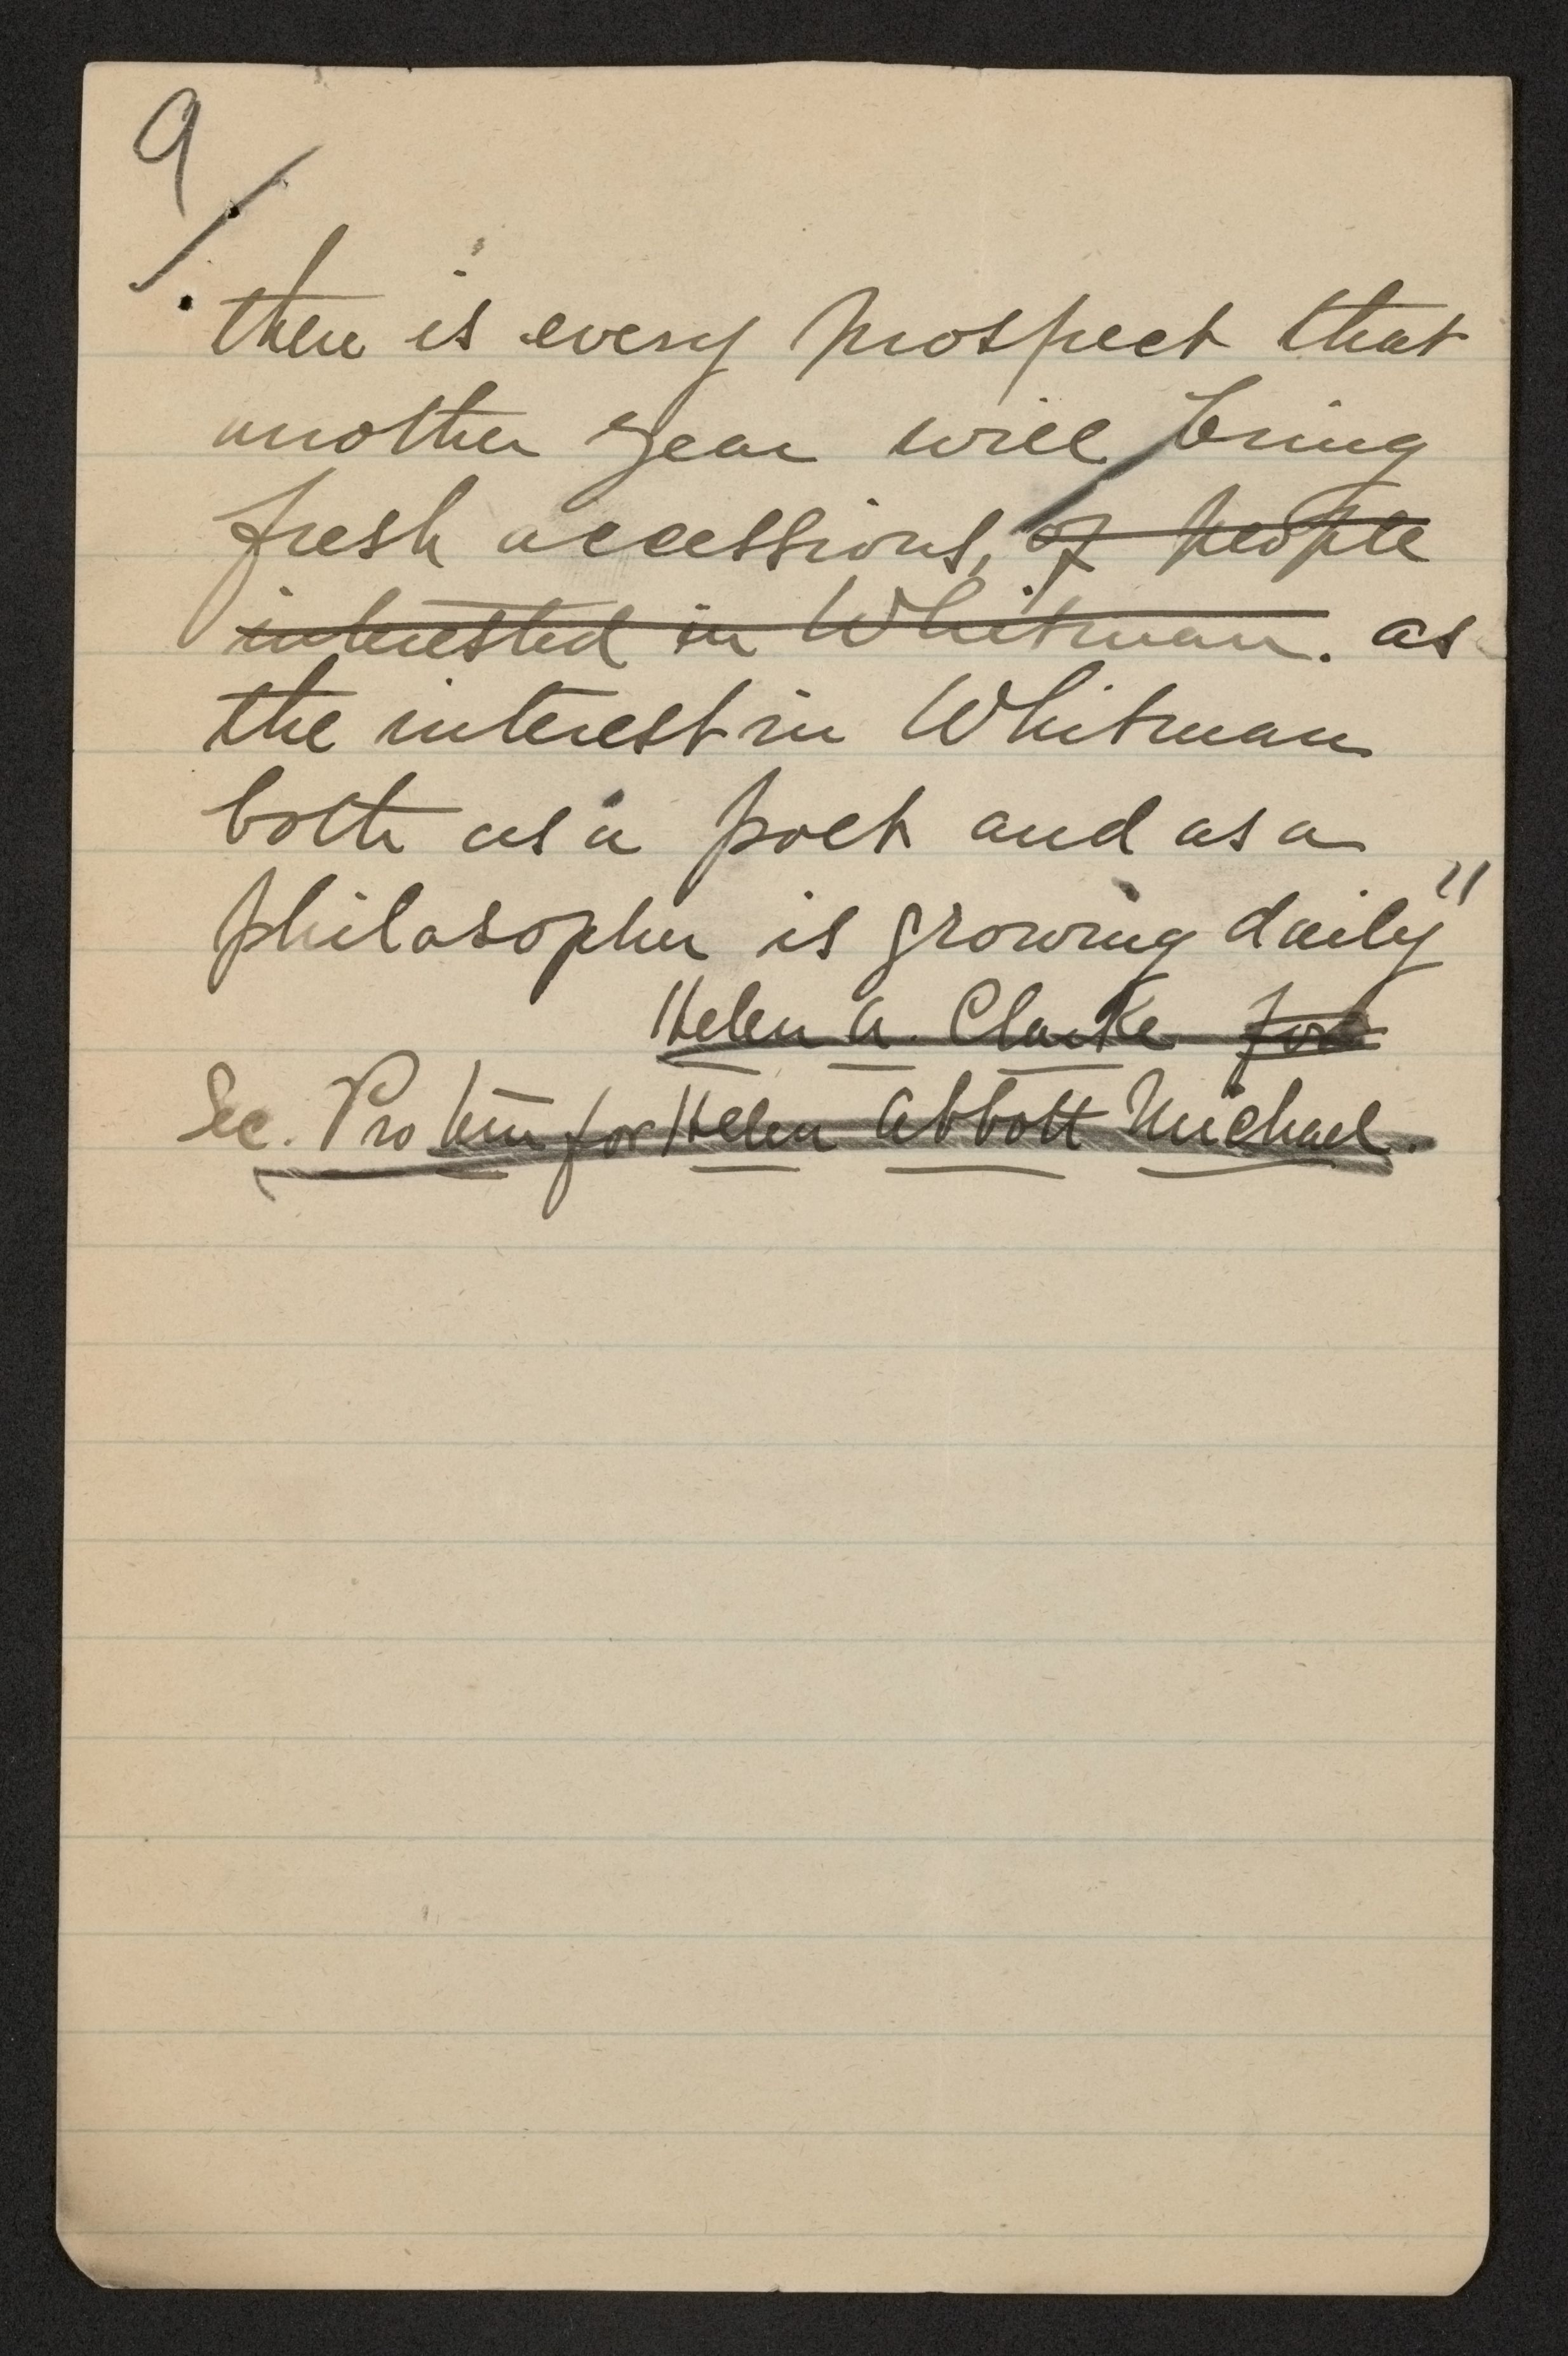 9/
there is every prospect that
another year will bring
fresh accessions, of people
interested in Whitman. as
the interest in Whitman
both as a poet and as a
philosopher is growing daily"
Helen A. Clarke for
Sec. Pro tem for Helen Abbott Michael.